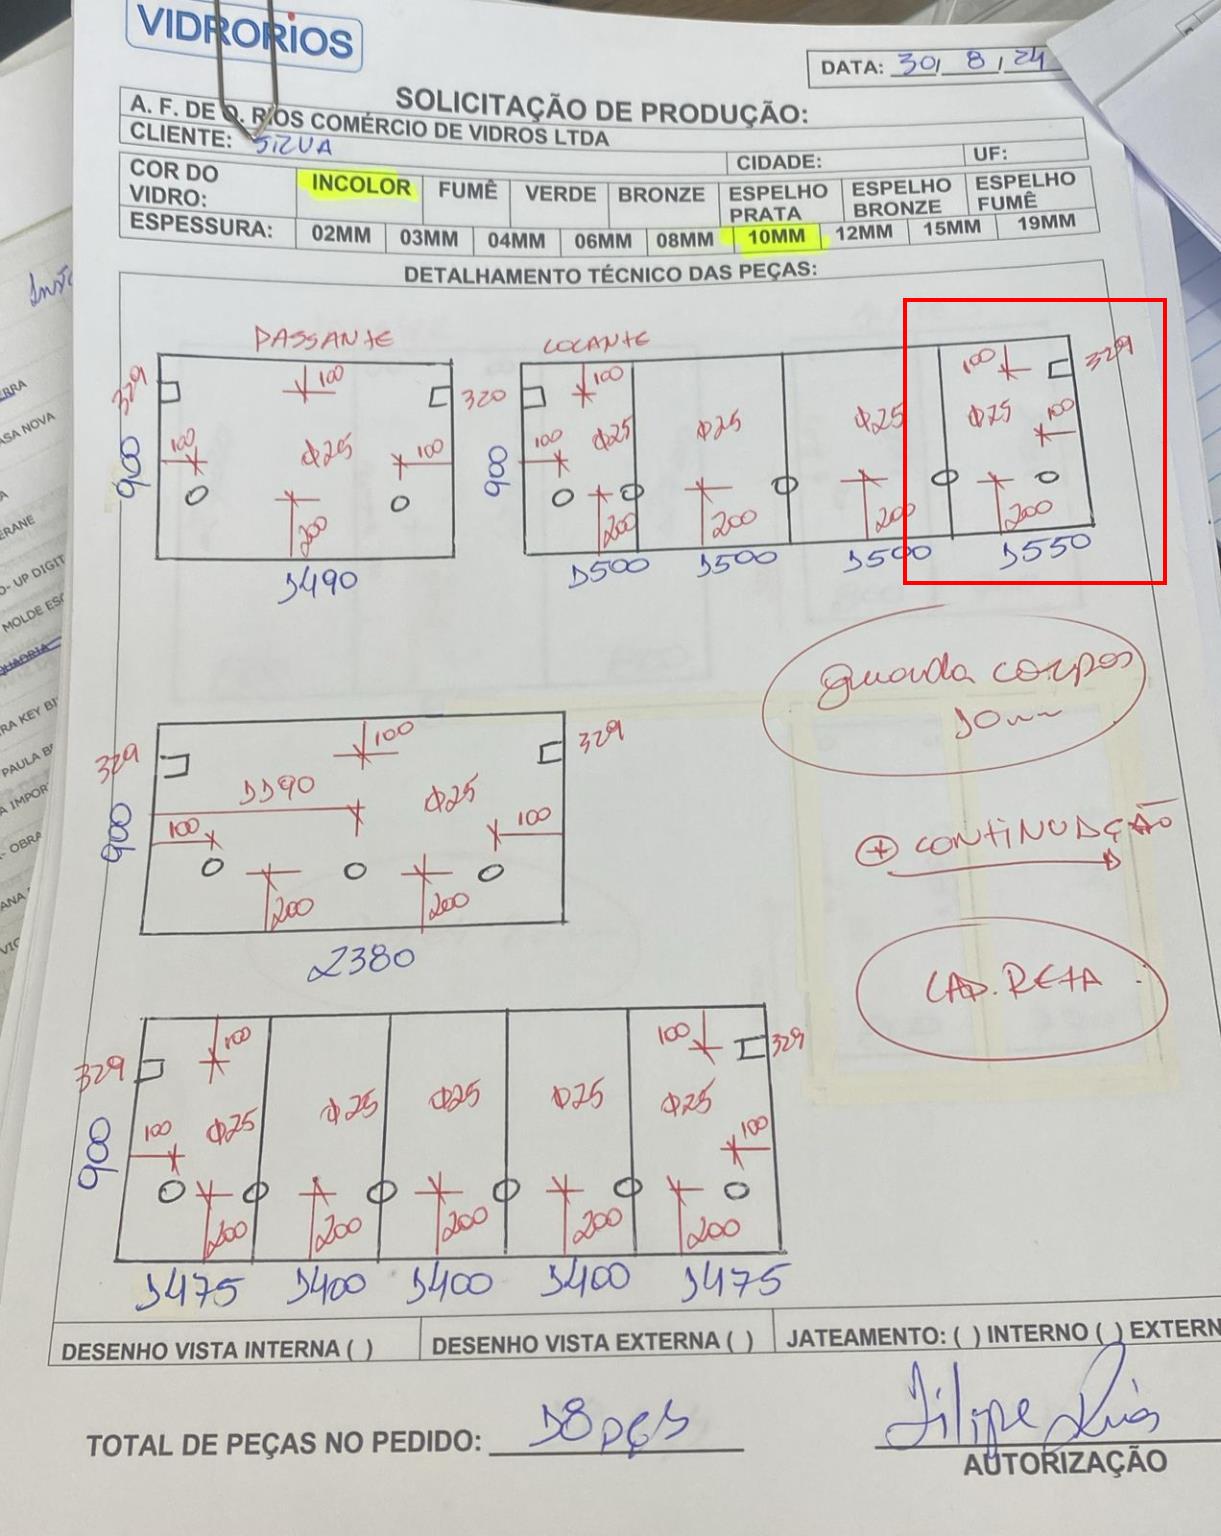 VIDRORIOS
DATA: 30/ 8 / 24
SOLICITAÇÃO DE PRODUÇÃO:
A. F. DE O. RIOS COMÉRCIO DE VIDROS LTDA
CLIENTE: SILVA
CIDADE: UF:
COR DO VIDRO: INCOLOR FUMÊ VERDE BRONZE ESPELHO PRATA ESPELHO BRONZE ESPELHO FUMÊ
ESPESSURA: 02MM 03MM 04MM 06MM 08MM 10MM 12MM 15MM 19MM
DETALHAMENTO TÉCNICO DAS PEÇAS:
PASSANTE
329 100 320
900 100 Φ25 100
200
1490
LOCANTE
100 100 329
900 100 Φ25 Φ25 Φ25 Φ25 100
200 200 200 200
1500 1500 1500 1550
guarda corpos
10mm
329 100 329
1190 Φ25
900 100 100
200 200
2380
+ CONTINUAÇÃO
LAP. RETA
329 100 100 329
900 100 Φ25 Φ25 Φ25 Φ25 Φ25 100
200 200 200 200 200
1475 1400 1400 1400 1475
DESENHO VISTA INTERNA ( ) DESENHO VISTA EXTERNA ( ) JATEAMENTO: ( ) INTERNO ( ) EXTERN
TOTAL DE PEÇAS NO PEDIDO: 18 pçs
Filipe Rios
AUTORIZAÇÃO
ERRA
ASA NOVA
ERANE
O- UP DIGIT
MOLDE ESC
QUADRIA
RA KEY BI
PAULA B
A IMPOR
- OBRA
ANA